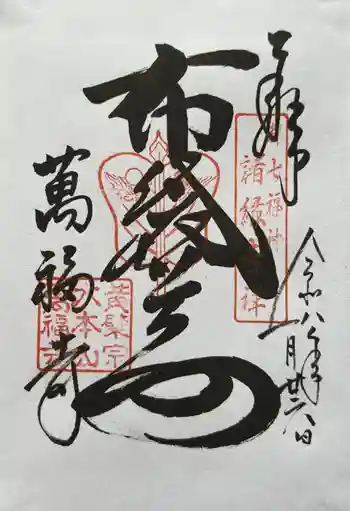 奉拝
七福神
諸縁吉祥
令和八年
月廿六日
布袋尊
萬福寺
黄檗宗
大本山
萬福寺